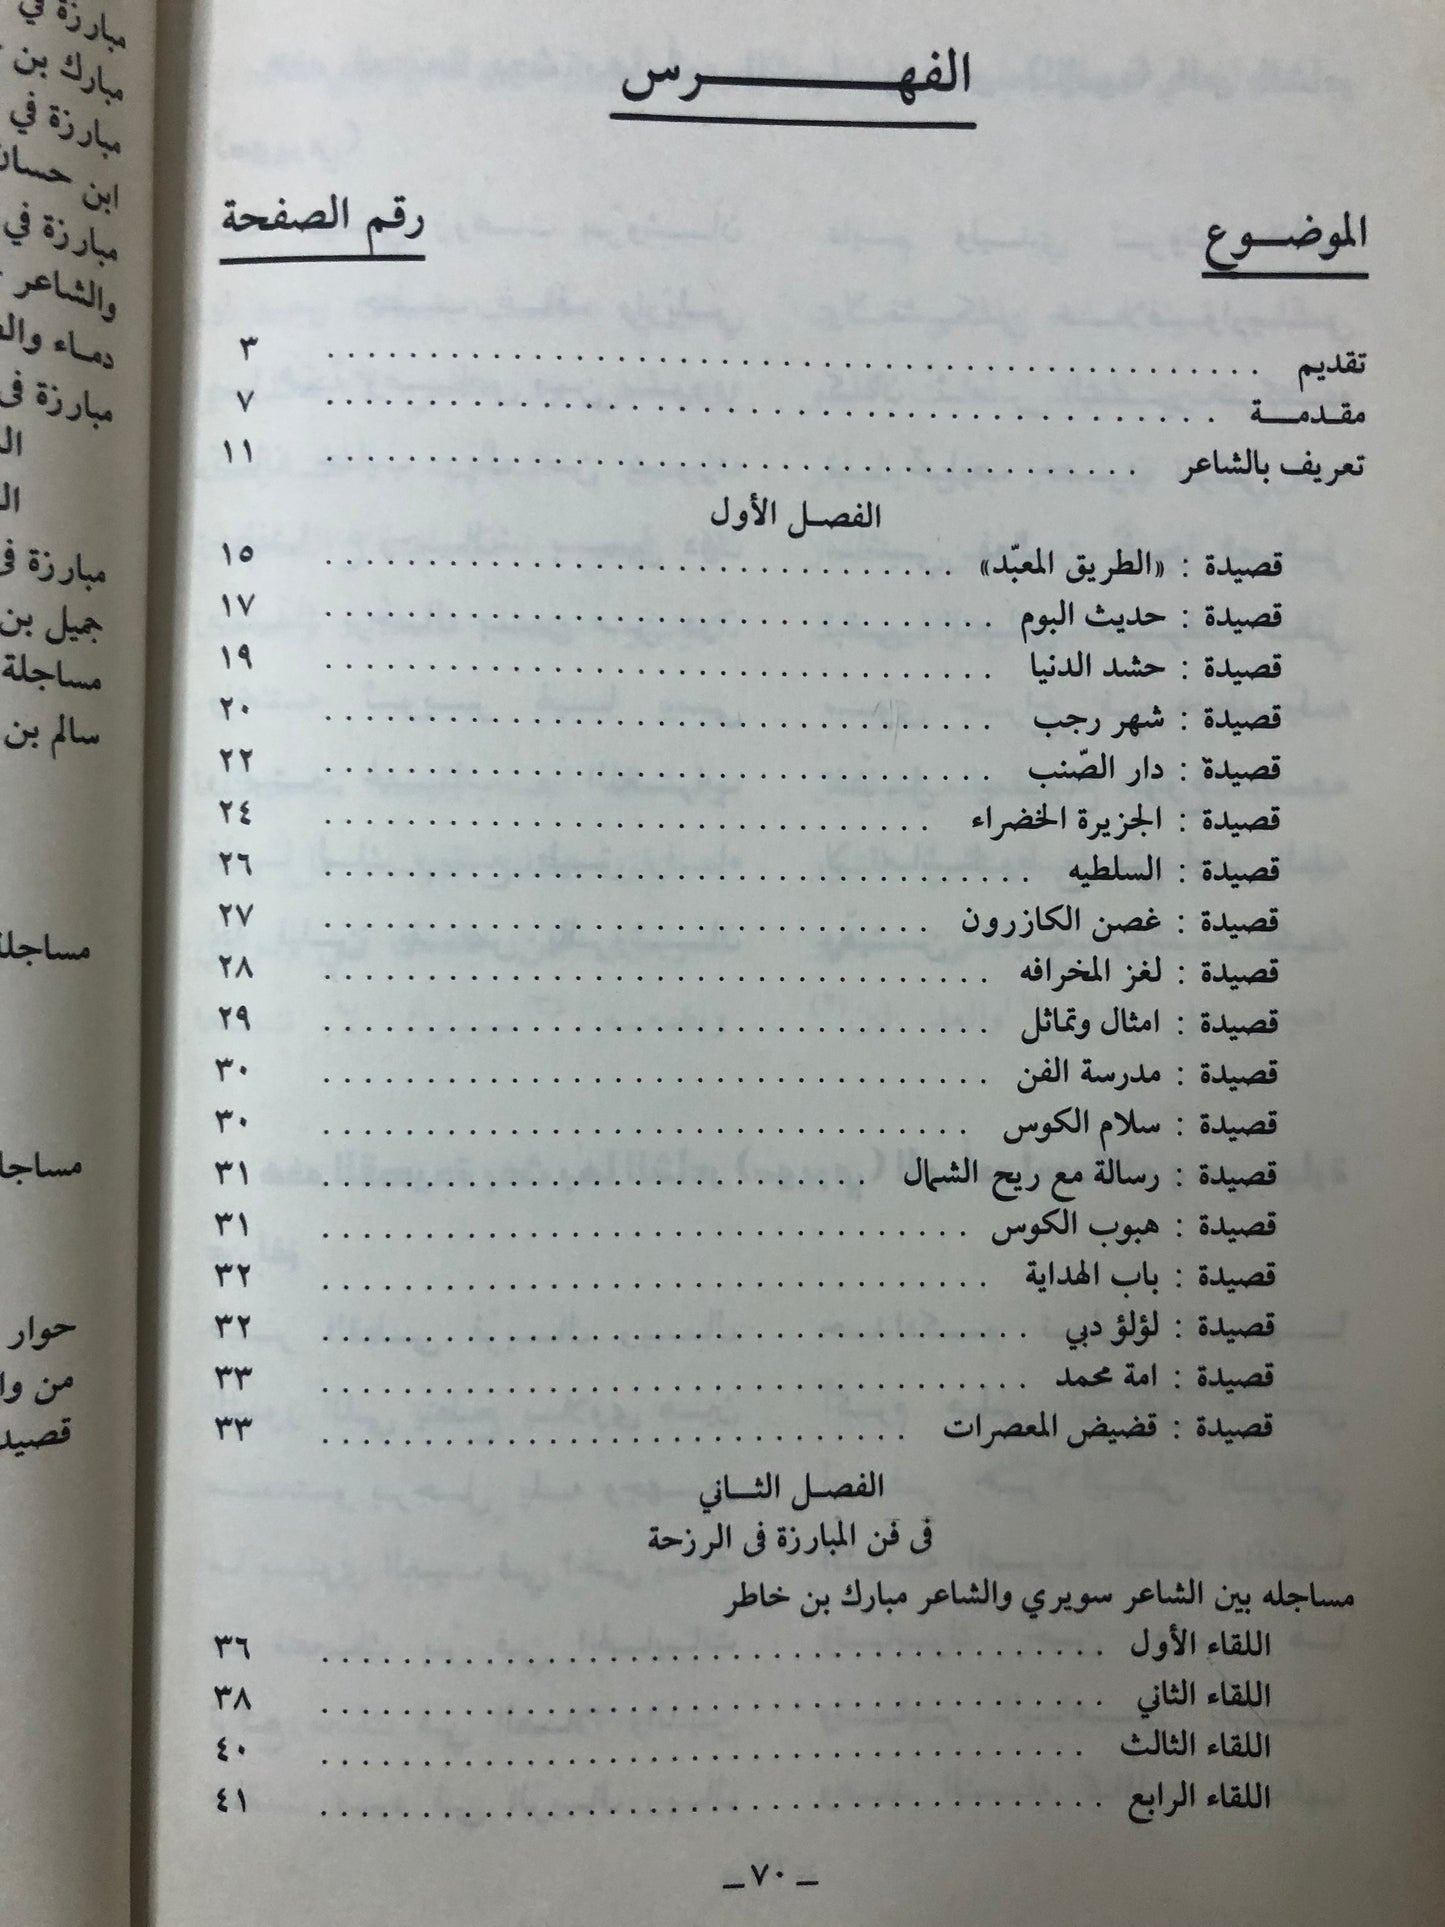 الفهـــرس
الموضـوع رقم الصفحة
تقديم ٣
مقدمـة ٧
تعريف بالشاعر ١١
الفصل الأول
قصيدة : «الطريق المعبّد» ١٥
قصيدة : حديث البوم ١٧
قصيدة : حشد الدنيا ١٩
قصيدة : شهر رجب ٢٠
قصيدة : دار الصّنب ٢٢
قصيدة : الجزيرة الخضراء ٢٤
قصيدة : السلطيه ٢٦
قصيدة : غصن الكازرون ٢٧
قصيدة : لغز المخرافه ٢٨
قصيدة : امثال وتماثل ٢٩
قصيدة : مدرسة الفن ٣٠
قصيدة : سلام الكوس ٣٠
قصيدة : رسالة مع ريح الشمال ٣١
قصيدة : هبوب الكوس ٣١
قصيدة : باب الهداية ٣٢
قصيدة : لؤلؤ دبي ٣٢
قصيدة : امة محمد ٣٣
قصيدة : قضيض المعصرات ٣٣
الفصل الثـاني
فى فن المبارزة فى الرزحة
مساجله بين الشاعر سويري والشاعر مبارك بن خاطر
اللقاء الأول ٣٦
اللقاء الثاني ٣٨
اللقاء الثالث ٤٠
اللقاء الرابع ٤١
ـ ٧٠ ـ
مبارزة في
مبارك بن
مبارزة في
ابن حسان
مبارزة في
والشاعر
دماء
مبارزة فى
مبارزة فى
جميل بن
مساجلة
سالم بن
مساجلة
حوار
من